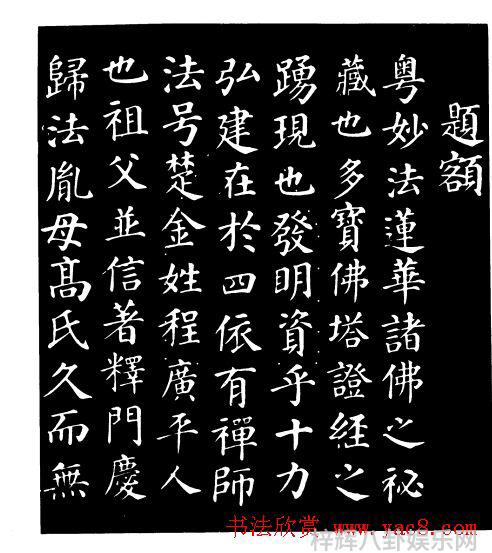 題額
粤妙法蓮華諸佛之祕
藏也多寶佛塔證経之
踴現也發明資乎十力
弘建在於四依有禪師
法号楚金姓程廣平人
也祖父並信著釋門慶
歸法胤母髙氏久而無
书法欣赏 www.yac8.com
梓辉八卦娱乐网